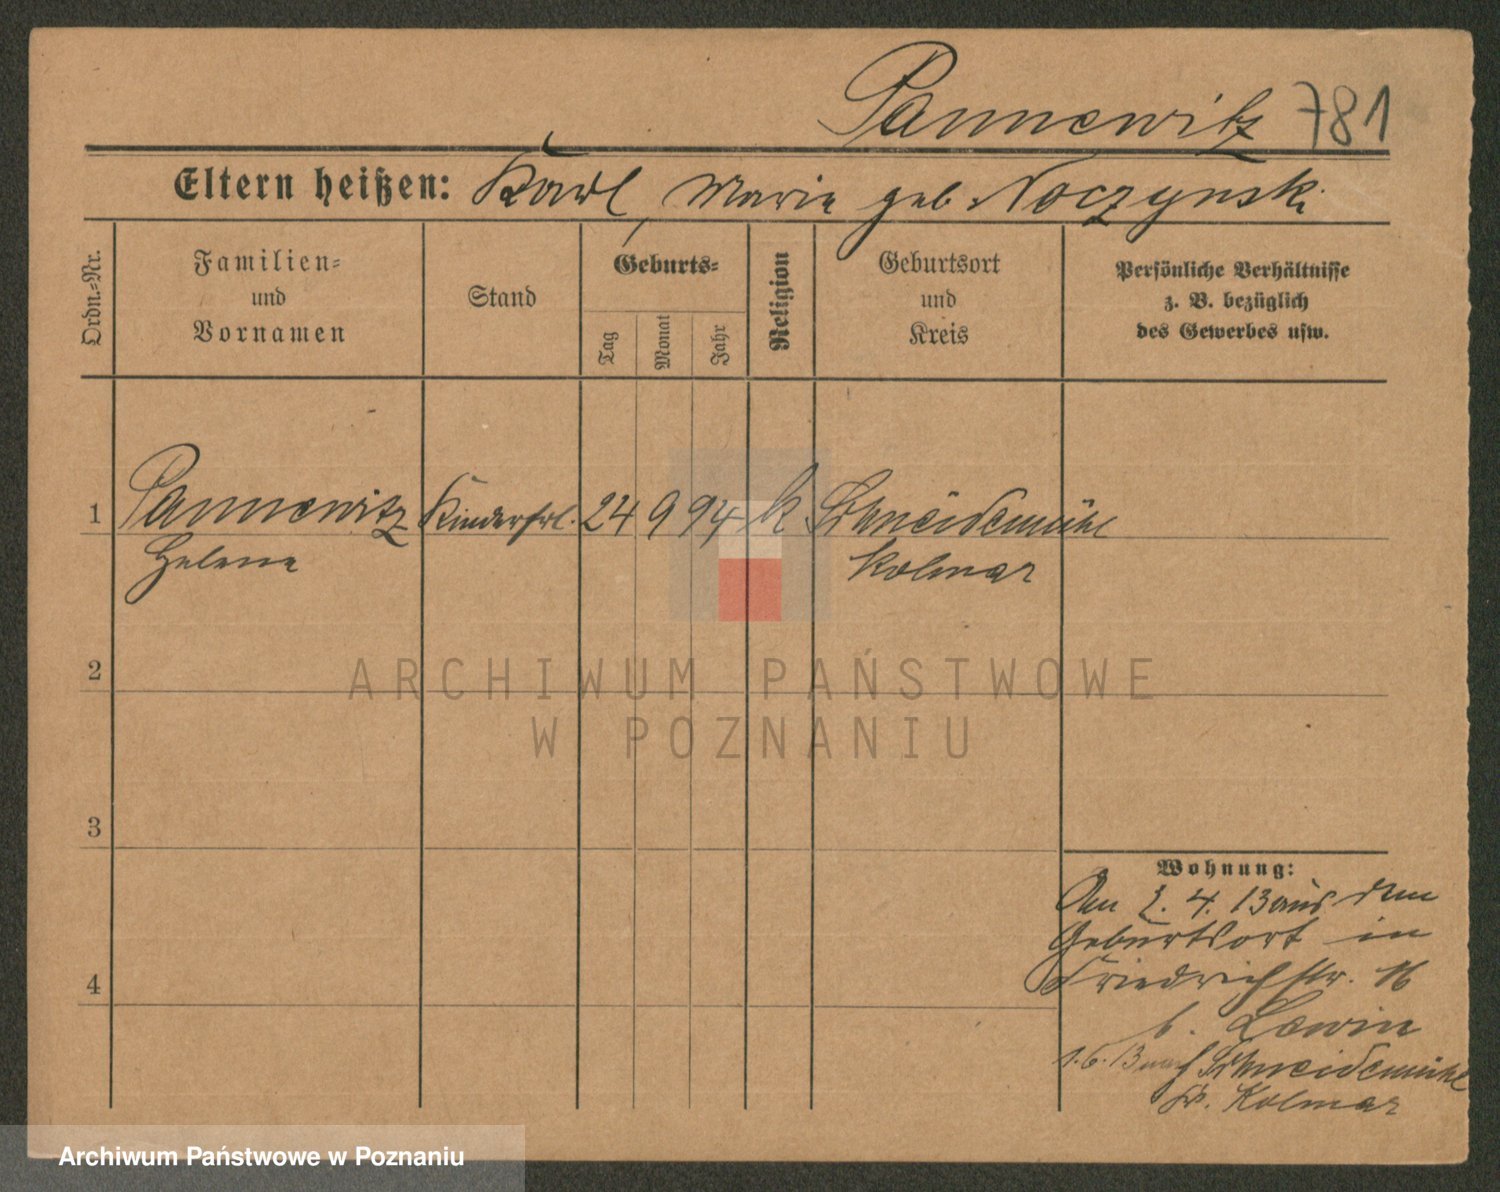 Pannewitz 781
Eltern heißen: Karl, Marie geb. Noczynski
Ordn.=Nr.
Familien=
und
Vornamen
Stand
Geburts=
Tag
Monat
Jahr
Religion
Geburtsort
und
Kreis
Persönliche Verhältnisse
z. B. bezüglich
des Gewerbes usw.
1 Pannewitz Kinderfrl. 24 9 94 k Schneidemühl
Helene Kolmar
2
3
4
Wohnung:
Am 2. 4. 13 aus dem
Geburtsort in
Friedrichstr. 16
b. Lewin
1. 6. 13 nach Schneidemühl
Kr. Kolmar
ARCHIWUM PAŃSTWOWE
W POZNANIU
Archiwum Państwowe w Poznaniu